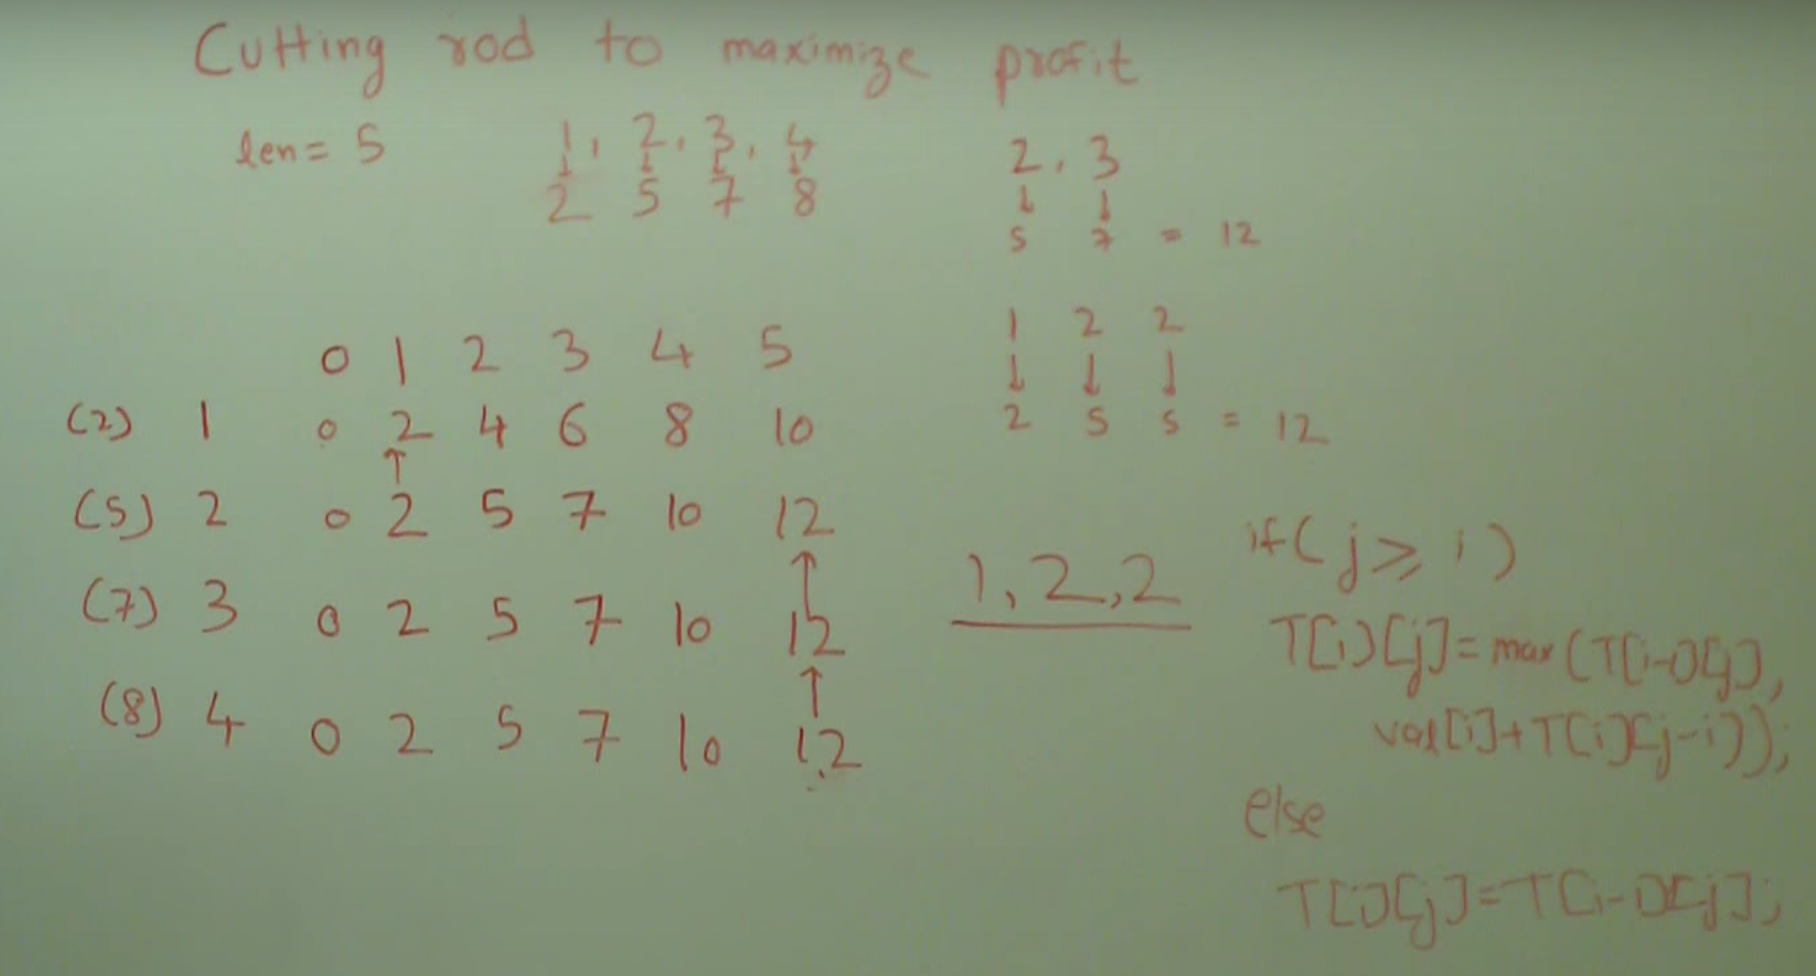 Cutting rod to maximize profit
len = 5
1, 2, 3, 4
↓ ↓ ↓ ↓
2 5 7 8
2, 3
↓ ↓
5 7 = 12
1 2 2
↓ ↓ ↓
2 5 5 = 12
0 1 2 3 4 5
(2) 1 0 2 4 6 8 10
↑
(5) 2 0 2 5 7 10 12
↑
(7) 3 0 2 5 7 10 12
↑
(8) 4 0 2 5 7 10 12
1, 2, 2
if( j ≥ i )
T[i][j] = max(T[i-1][j],
val[i] + T[i][j-i]);
else
T[i][j] = T[i-1][j];